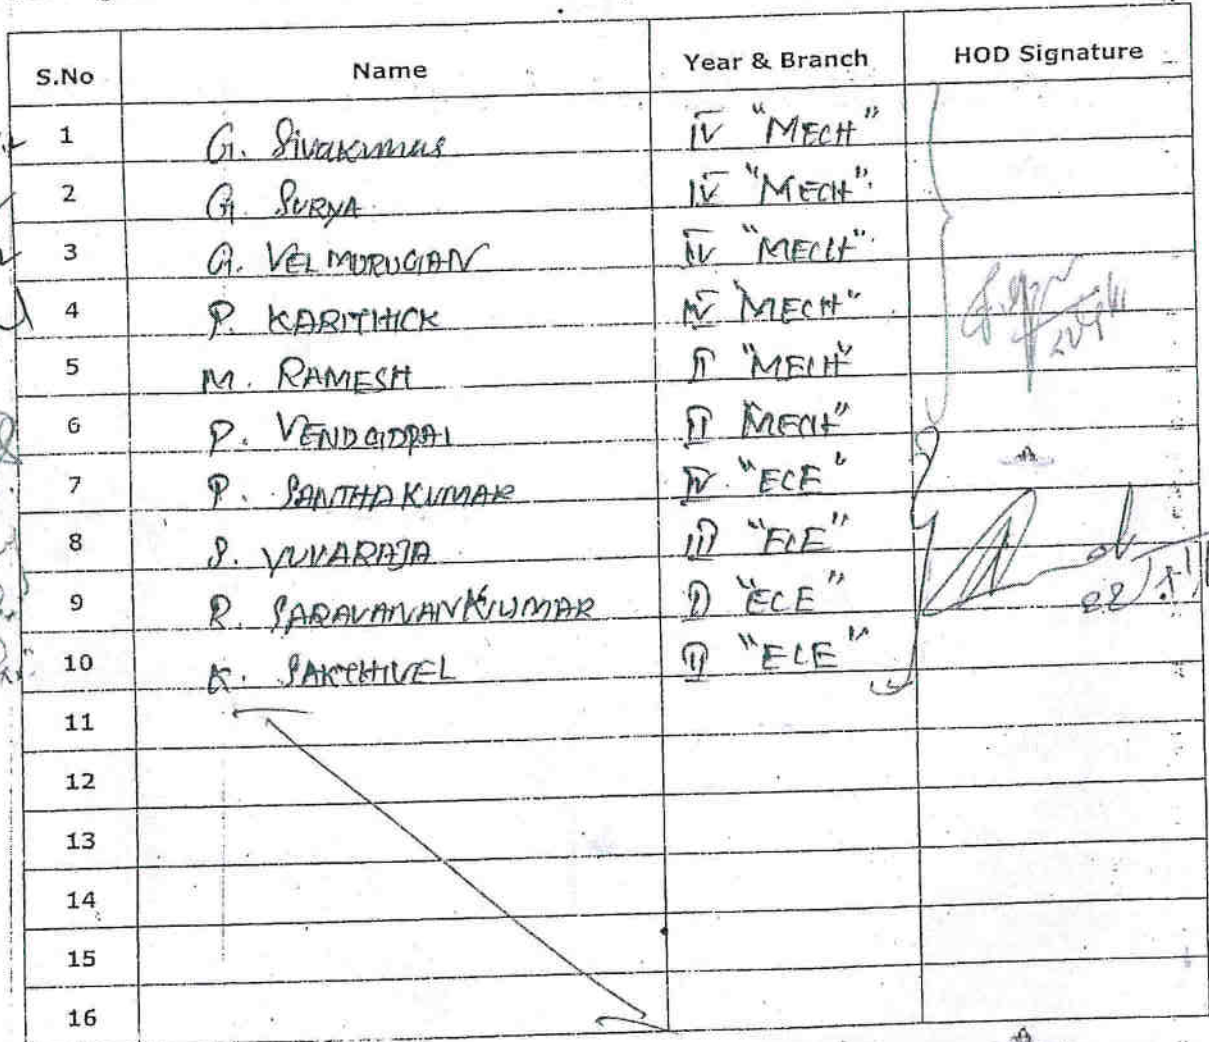 S.No Name Year & Branch HOD Signature
1 G. Sivakumar IV "MECH"
2 G. SURYA IV "MECH"
3 G. VELMURUGAN IV "MECH"
4 P. KARITHICK IV MECH"
5 M. RAMESH II "MECH"
6 P. II MECH"
7 P. SANTHAKUMAR IV "ECE"
8 S. YUVARAJA III "ECE"
9 R. SARAVANANKUMAR II "ECE"
10 K. SAKTHIVEL II "ECE"
11
12
13
14
15
16